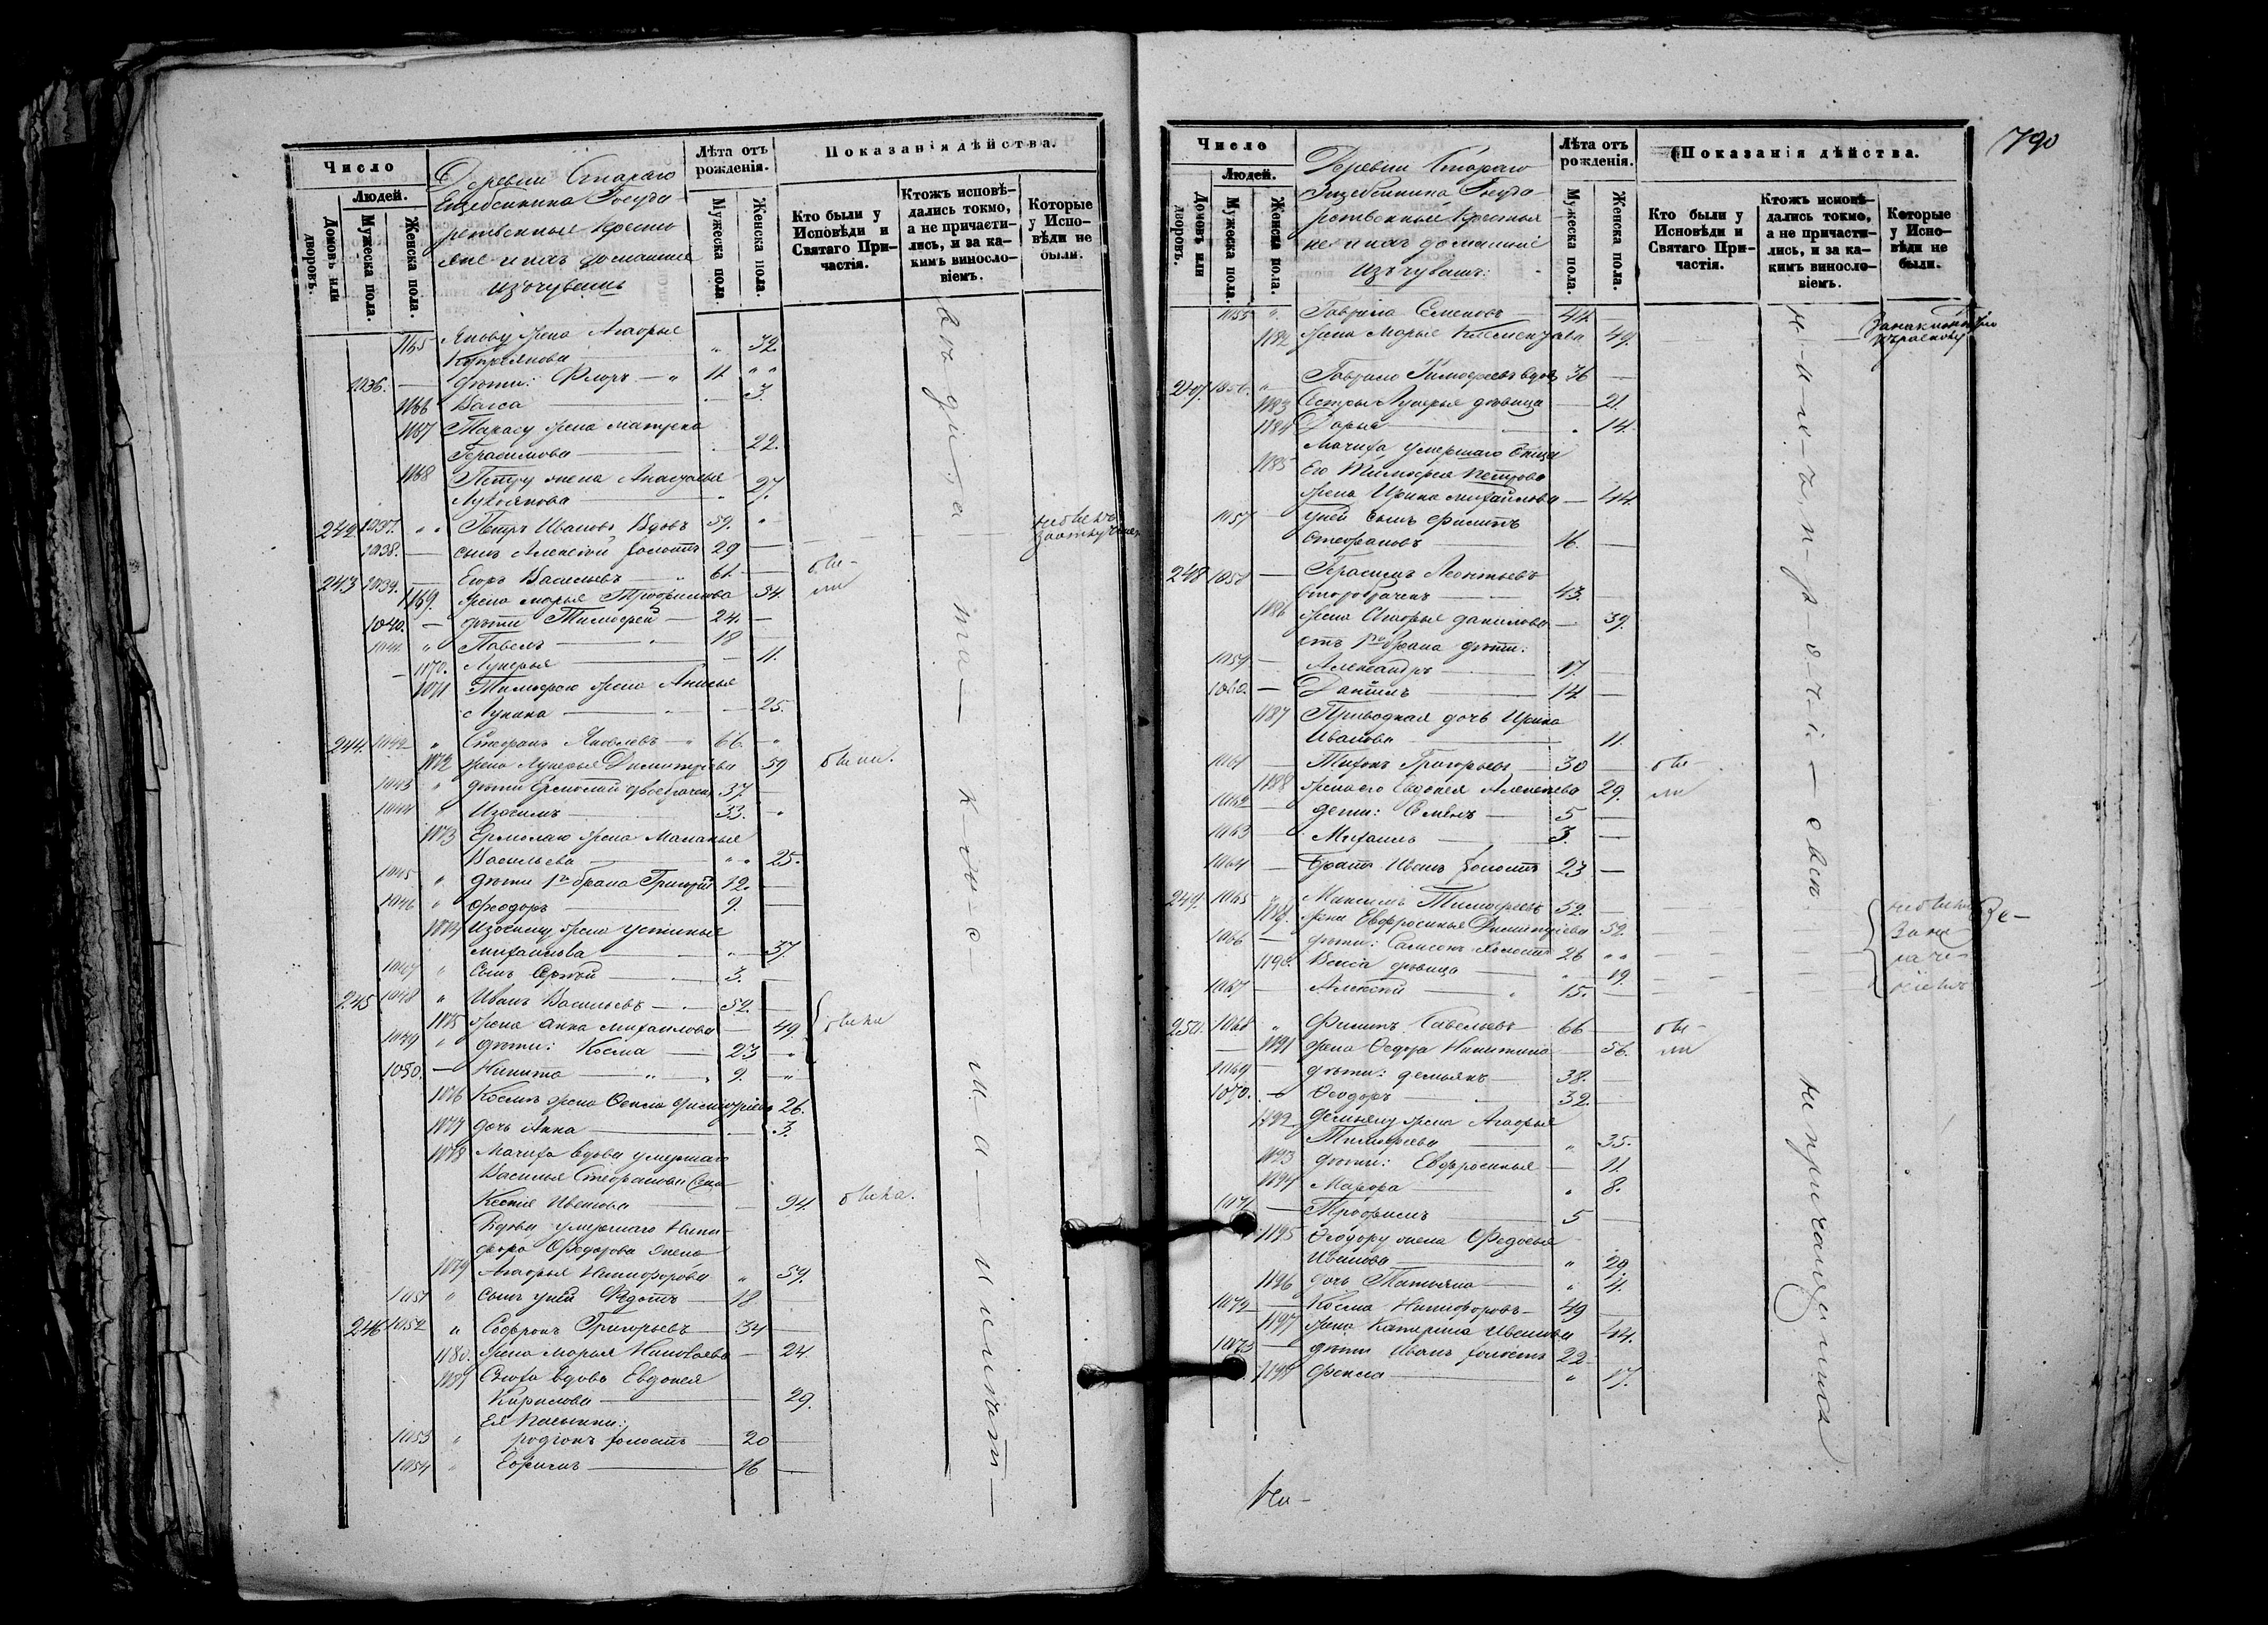 Число
Людей.
Домовъ или дворовъ.
Мужеска пола.
Женска пола.
Деревни Стараго
Государ-
ственные крестья
яне и ихъ домашние
изъ чувашъ
Лѣта отъ рожденія.
Мужеска пола.
Женска пола.
Показанія дѣйства.
Кто были у Исповѣди и Святаго Причастія.
Ктожъ исповѣдались токмо, а не причастились, и за какимъ винословіемъ.
Которые у Исповѣди не были.
1165 жена Агафья
32.
1036. дѣти: Флоръ 11
1166 Васса 3.
1167 Тарасу жена Матрена
Герасимова 22.
1168 Петру жена Анастасья
Лукоянова 27.
242 1037. Петръ Ивановъ Вдовъ 59.
1038. сынъ Алексей холостъ 29
243 1039. Егоръ Васильевъ 61. бы-
1169. жена Марья Трофимова 54. ли
1040. дѣти Тимофей 24.
1041. Павелъ 18
1170. Лукерья 11.
1071 Тимофею жена Анисья
Лукина 25.
244. 1042 Стефанъ Яковлевъ 66.
1172 жена Лукерья Димитріева 59 были.
1043 дѣти Ермолай двоебраченъ 37
1044 Изосимъ 33.
1173 Ермолаю жена Маланья
Васильева 25.
1045 дѣти 1го брака Григорій 12.
1046 Феодоръ 9.
1174 Изосиму жена Устинья
Михаилова 37.
1047 Сынъ Сергѣй 3.
245 1048 Иванъ Васильевъ 52.
1175 жена Анна Михаилова 49. были
1049 дѣти: Косма 23
1050. Никита 9.
1176 Космѣ жена 26.
1177 дочь Анна 3.
1178 Мачиха вдова умершаго
Василья Стефанова
Ксенія Иванова 94. была.
Вдова умершаго Ники-
фора Федорова жена
1179 Агафья Никифорова 59.
1051 Сынъ у ней Федотъ 18
246 1052 Софронъ Григорьевъ 34
1180. жена Марья 24.
1181 Сноха вдова Евдокея
Кирилова 29.
Ея пасынки:
1053 родіонъ холостъ 20
1054 Ефимъ 16
790
Число
Людей.
Домовъ или дворовъ.
Мужеска пола.
Женска пола.
Деревни Стараго
Государ-
ственные крестья
не и ихъ домашніе
изъ чувашъ:
Лѣта отъ рожденія.
Мужеска пола.
Женска пола.
Показанія дѣйства.
Кто были у Исповѣди и Святаго Причастія.
Ктожъ исповѣдались токмо, а не причастились, и за какимъ винословіемъ.
Которые у Исповѣди не были.
1055 Гаврила Семеновъ 44.
1182 жена Марья 49.
247. 1056. Гаврило Тимофеевъ вдовъ 36
1183 Сестры Лукерья девица 21.
1184 Дарья 14.
Мачиха умершаго отца
1185 Его Тимофея Петрова
жена Ирина Михайлова 44.
1057 у ней сынъ Филипъ
Стефановъ 16.
248 1058 Герасимъ Леонтьевъ
второбраченъ 43.
1186 жена Агафья Данилова 39.
отъ 1го брака дѣти:
1059 Александръ 17.
1060. Даніилъ 14
1187 Приводная дочь Ирина
Иванова 11.
1061 Тихонъ Григорьевъ 30 бы-
1188 жена его Евдокея Алексеева 29. ли
1062 дети: Семенъ 5
1063 Михаилъ 3.
1064 Братъ Иванъ холостъ 23
249. 1065 Максимъ Тимофеевъ 52.
1189. жена Евфросинья Димитріева 52.
1066 дѣти: Самсонъ холостъ 26
1190. Васса дѣвица 19.
1067 Алексѣй 15.
250. 1068 Филипъ Савельевъ 66 бы-
1191 жена Федора Никитина 56. ли
1069 дѣти: Демьянъ 38.
1070. Феодоръ 32.
1192 Демьяну жена Агафья
Тимофеева 35.
1193 дѣти: Евфросинья 11.
1194 Марфа 8.
1071 Трофимъ 5
1195 Феодору жена Федосья
Иванова 29.
1196 дочь Татьяна 4.
1072 Косма Никифоровъ 49
1197 жена Катерина Иванова 44.
1073 дѣти Иванъ холостъ 22
1198 Фекла 17.